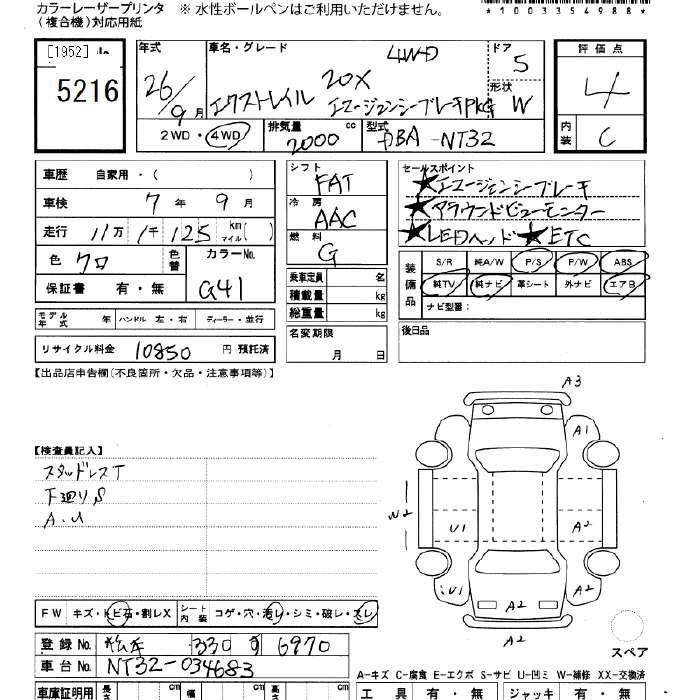 カラーレーザープリンタ ※ 水性ボールペンはご利用いただけません。
(複合機)対応用紙
*1003354988*
[1952]
5216
年式 車名・グレード ドア 評価点
26/9月 エクストレイル 20X 4WD 5
エマージェンシーブレーキPKG 形状 W 4
2WD・4WD 排気量 2000 cc 型式 DBA-NT32 内装 C
車歴 自家用・( )
車検 7年9月
走行 11万1千125 km マイル( )
色 クロ 色替 カラーNo. G41
保証書 有・無
シフト FAT
冷房 AAC
燃料 G
乗車定員 名
積載量 kg
総重量 kg
セールスポイント
★エマージェンシーブレーキ
★アラウンドビューモニター
★LEDヘッド★ETC
装備品 S/R 純A/W P/S P/W ABS
純TV 純ナビ 革シート 外ナビ エアB
ナビ型番:
モデル年式 年 ハンドル 左・右 ディーラー・並行
名変期限 月 日
後日品
リサイクル料金 10850 円 預託済
【出品店申告欄(不良箇所・欠品・注意事項等)】
【検査員記入】
スタッドレスT
下廻りS
A.U
A3
A1
W2
U1 A2
U1 A2
A2
A2
スペア
FW キズ・トビ石・割レX シート内装 コゲ・穴・汚レ・シミ・破レ・スレ
登録No. 松本 330 す 6970
車台No. NT32-034683
A-キズ C-腐食 E-エクボ S-サビ U-凹ミ W-補修 XX-交換済
車庫証明用 長さ cm 幅 cm 高さ cm
工具 有・無 ジャッキ 有・無